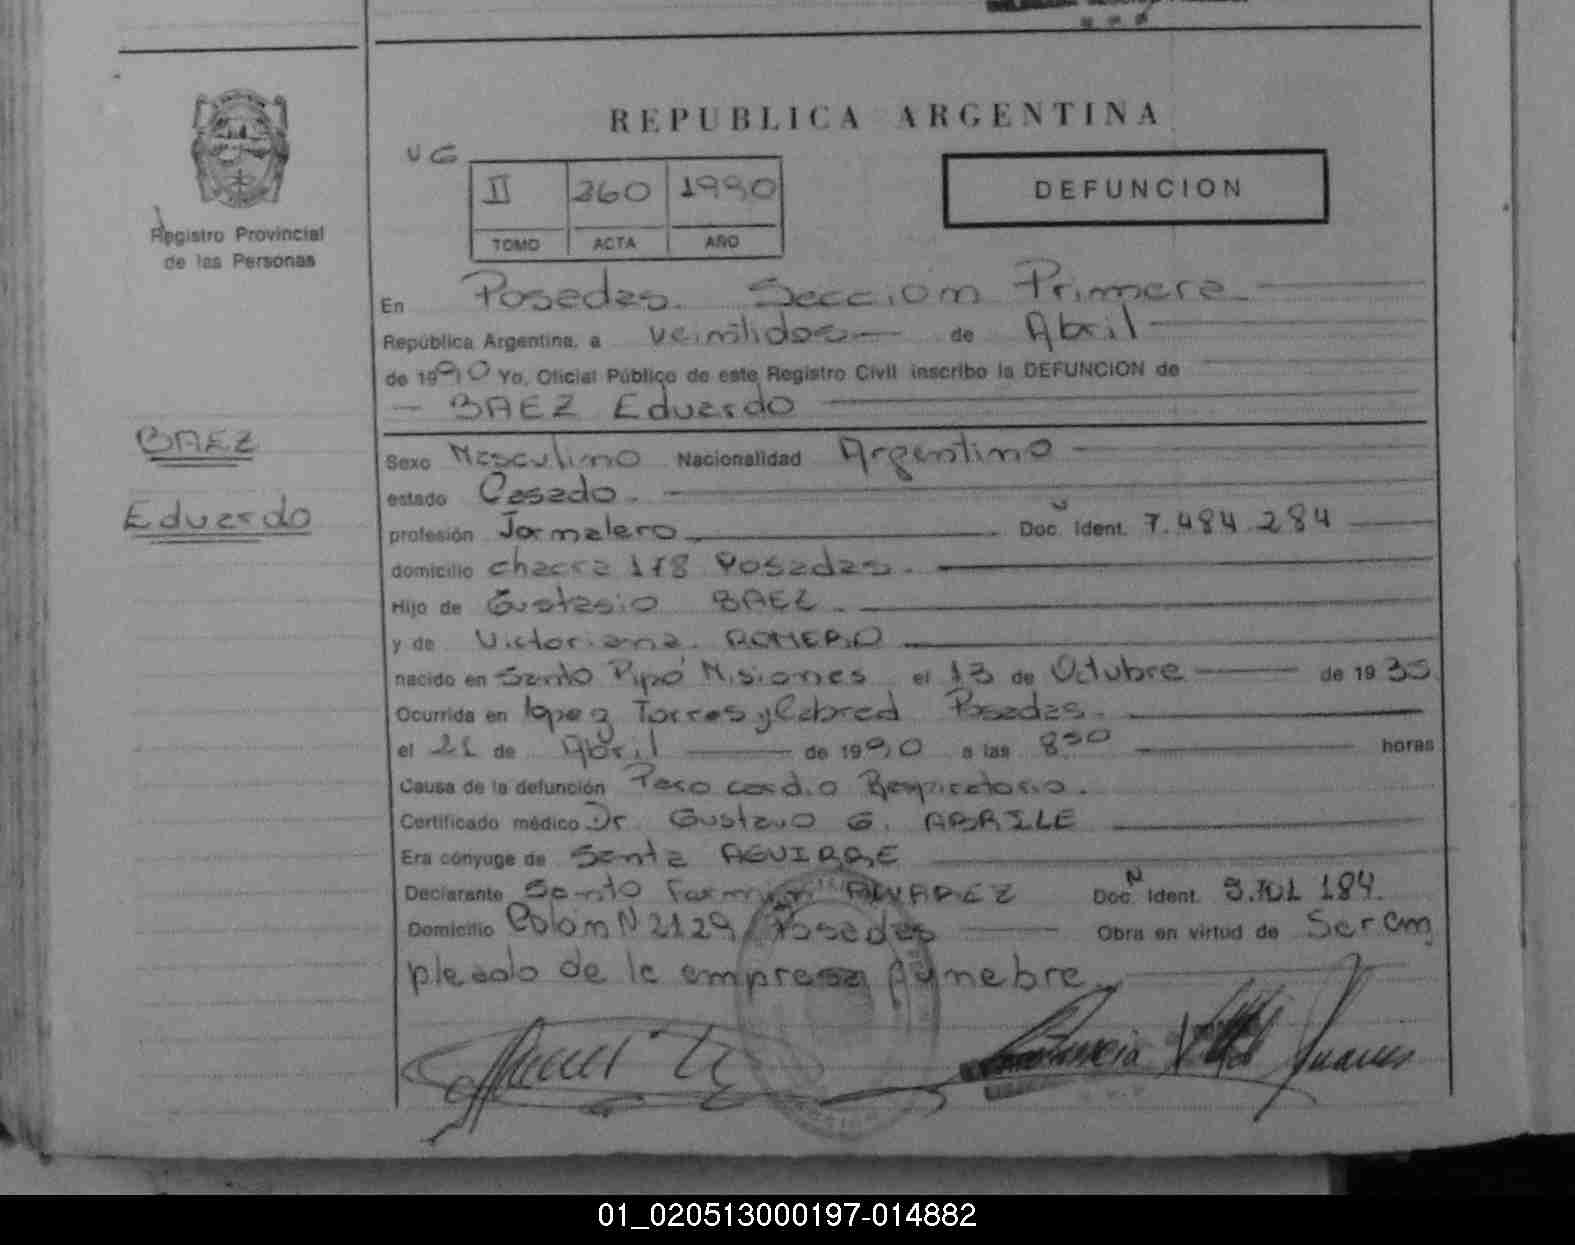 REPUBLICA ARGENTINA
UG
II 260 1990
TOMO ACTA AÑO
DEFUNCION
Registro Provincial
de las Personas
En Posadas. Sección Primera
República Argentina, a veintidos de Abril
de 1990 Yo, Oficial Público de este Registro Civil inscribo la DEFUNCION de
BAEZ Eduardo
BAEZ
Eduardo
Sexo Masculino Nacionalidad Argentino
estado Casado.
profesión Jornalero Doc. Ident. 7.484.284
domicilio chacra 178 Posadas.
Hijo de Gustasio BAEZ.
y de Victoriana. ROMERO
nacido en Santo Pipó Misiones el 13 de Octubre de 1935
Ocurrida en lopez Torres y Cabred Posadas.
el 21 de Abril de 1990 a las 830 horas
Causa de la defunción Paro cardio Respiratorio.
Certificado médico Dr. Gustavo G. ABRILE
Era cónyuge de Santa AGUIRRE
Declarante Santo ALVAREZ Doc. Ident. 184.
Domicilio Colón N 2129 Posadas Obra en virtud de Ser em
pleado de la empresa funebre
01_020513000197-014882